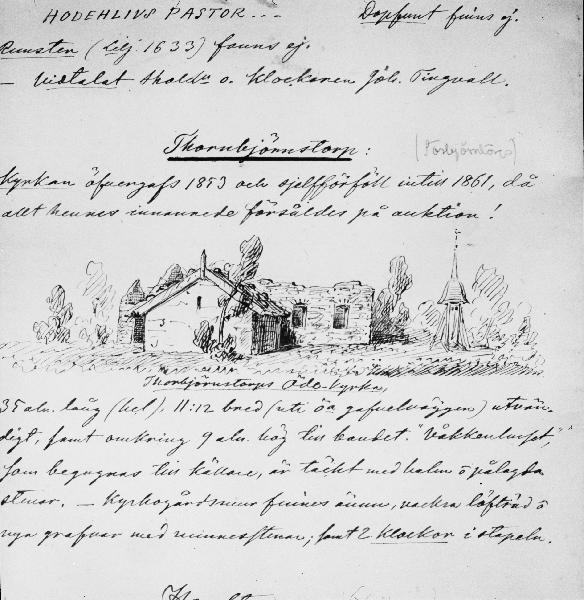 HODEHLIVS PASTOR...
Dopfunt finns ej.
Runsten (Lilj. 1633) fanns ej.
— Vidtalat Skoldn o. Klockaren Joh. Tingvall.
Thornbjörnstorp:
(Torbjörntorp)
Kyrkan öfvergafs 1853 och sjelfförföll intill 1861, då
allt hennes innanrede försåldes på auktion!
Thorbjörnstorps Öde-kyrka,
35 aln. lång (hel), 11:12 bred (uti öa gafvelväggen) utvän-
digt, samt omkring 9 aln. hög till bandet.
som begagnas till källare, är täckt med halm o pålagda
stenar. — Kyrkogårdsmur finnes ännu, vackra löfträd o
nya grafvar med minnesstenar, samt 2 klockor i stapeln.